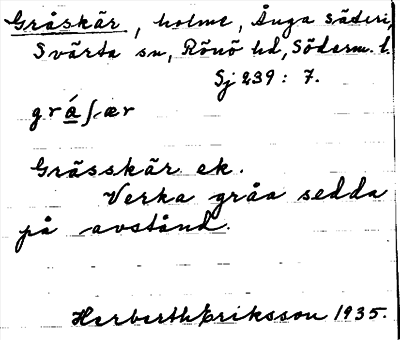 Gråskär, holme, Ånga säteri,
Svärta sn, Rönö hd, Söderm. l.
Sj 239: 7.
grá̱ʃær
Grässkär ek.
Verka gråa sedda
på avstånd.
Herberth Eriksson 1935.